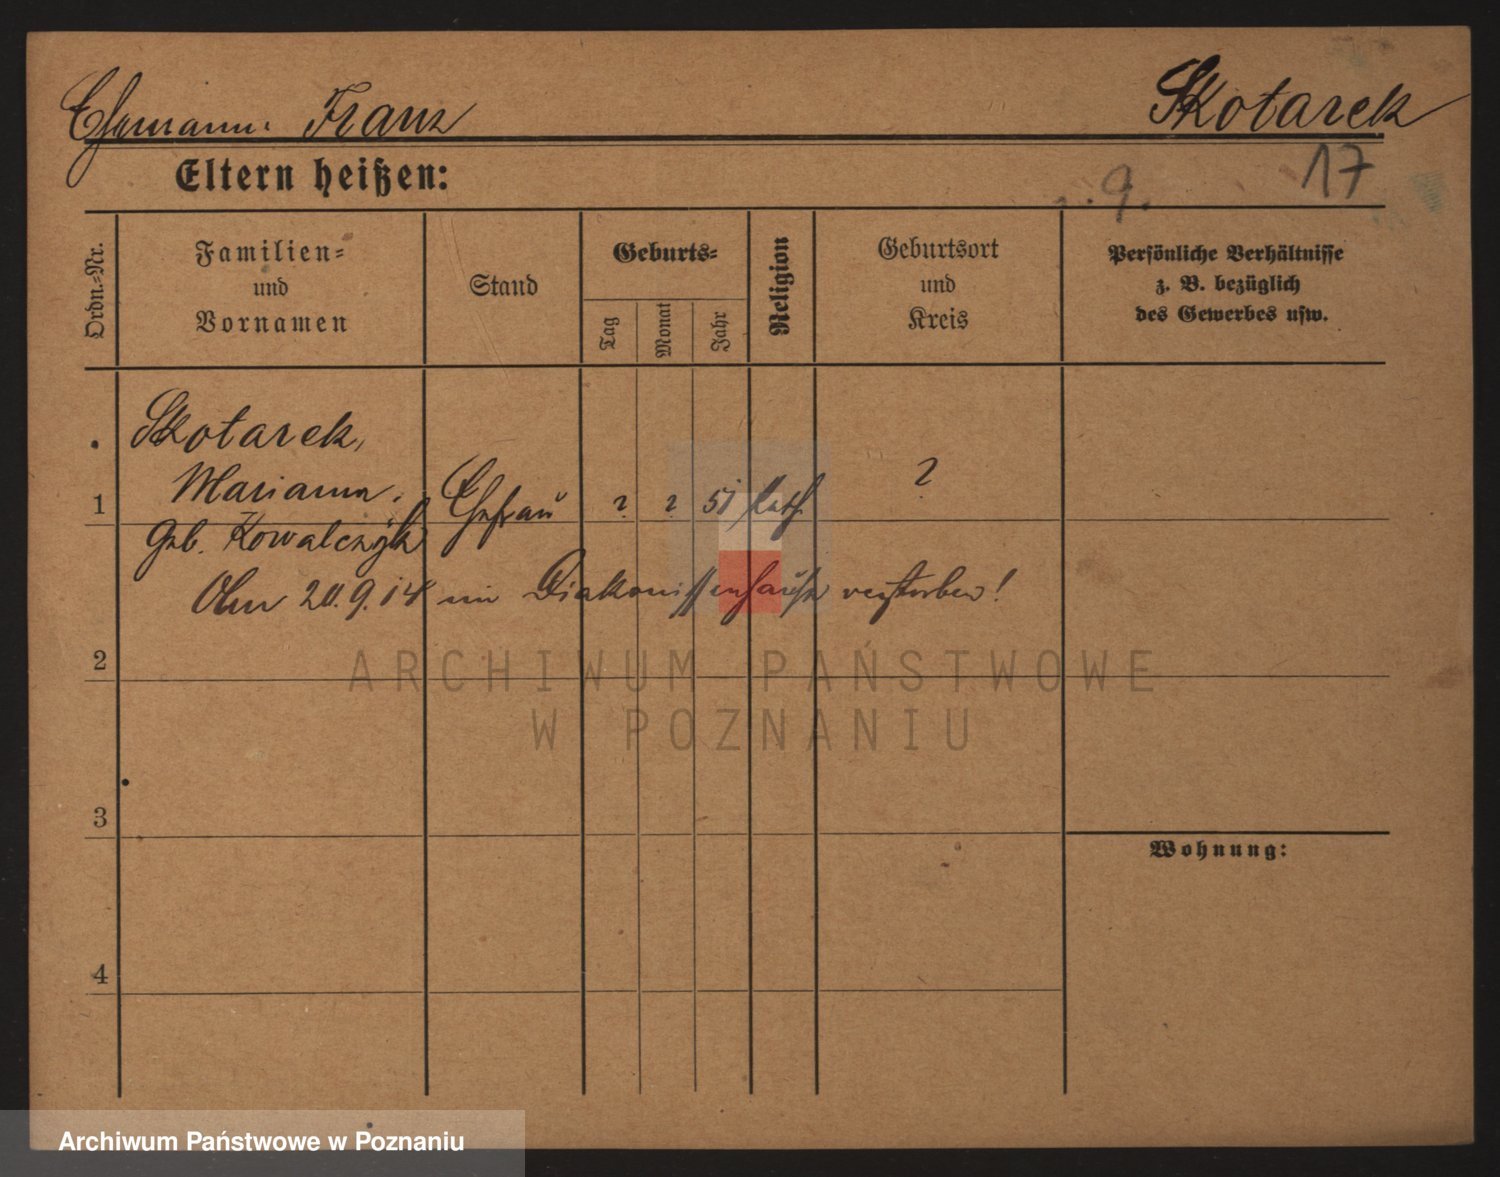 Ehemann: Franz Skotarek
Eltern heißen:
17
9.
Ordn.-Nr.
Familien-
und
Vornamen
Stand
Geburts-
Tag
Monat
Jahr
Religion
Geburtsort
und
Kreis
Persönliche Verhältnisse
z. B. bezüglich
des Gewerbes usw.
Skotarek,
1 Marianna. Ehefrau ? ? 51 kath. ?
geb. Kowalczyk
Am 20.9.14 im Diakonissenhause verstorben!
2
3
4
Wohnung:
ARCHIWUM PAŃSTWOWE
W POZNANIU
Archiwum Państwowe w Poznaniu